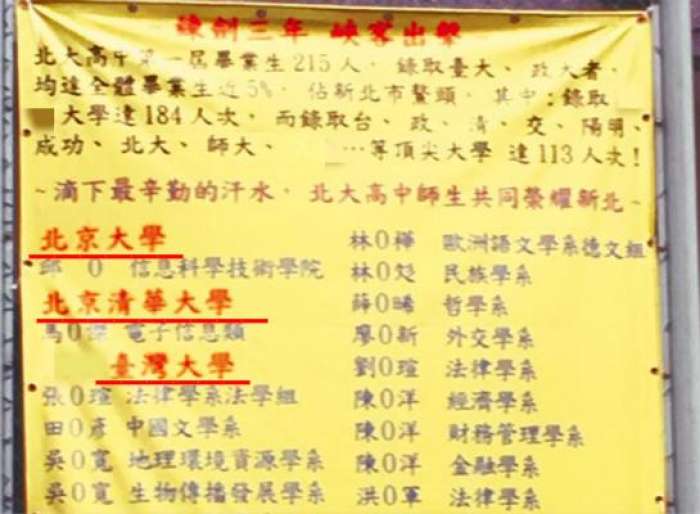 練劍三年 峽客出擊
北大高中第一屆畢業生215人，錄取臺大、政大者，
均達全體畢業生近5%，佔新北市鰲頭，其中:錄取
大學達184人次，而錄取台、政、清、交、陽明、
成功、北大、師大、…等頂尖大學 達113人次!
~滴下最辛勤的汗水，北大高中師生共同榮耀新北~
北京大學
邱0 信息科學技術學院
北京清華大學
馬0傑 電子信息類
臺灣大學
張0瑄 法律學系法學組
田0彥 中國文學系
吳0寬 地理環境資源學系
吳0寬 生物傳播發展學系
林0樺 歐洲語文學系德文組
林0彣 民族學系
薛0晞 哲學系
廖0新 外交學系
劉0瑄 法律學系
陳0洋 經濟學系
陳0洋 財務管理學系
陳0洋 金融學系
洪0軍 法律學系